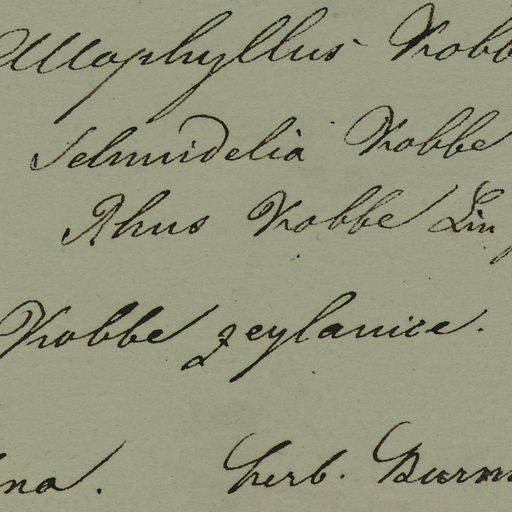 Allophyllus Kobb
Schmidelia Kobbe
Rhus Kobbe Lin
Kobbe zeylanice.
na. herb. Burm